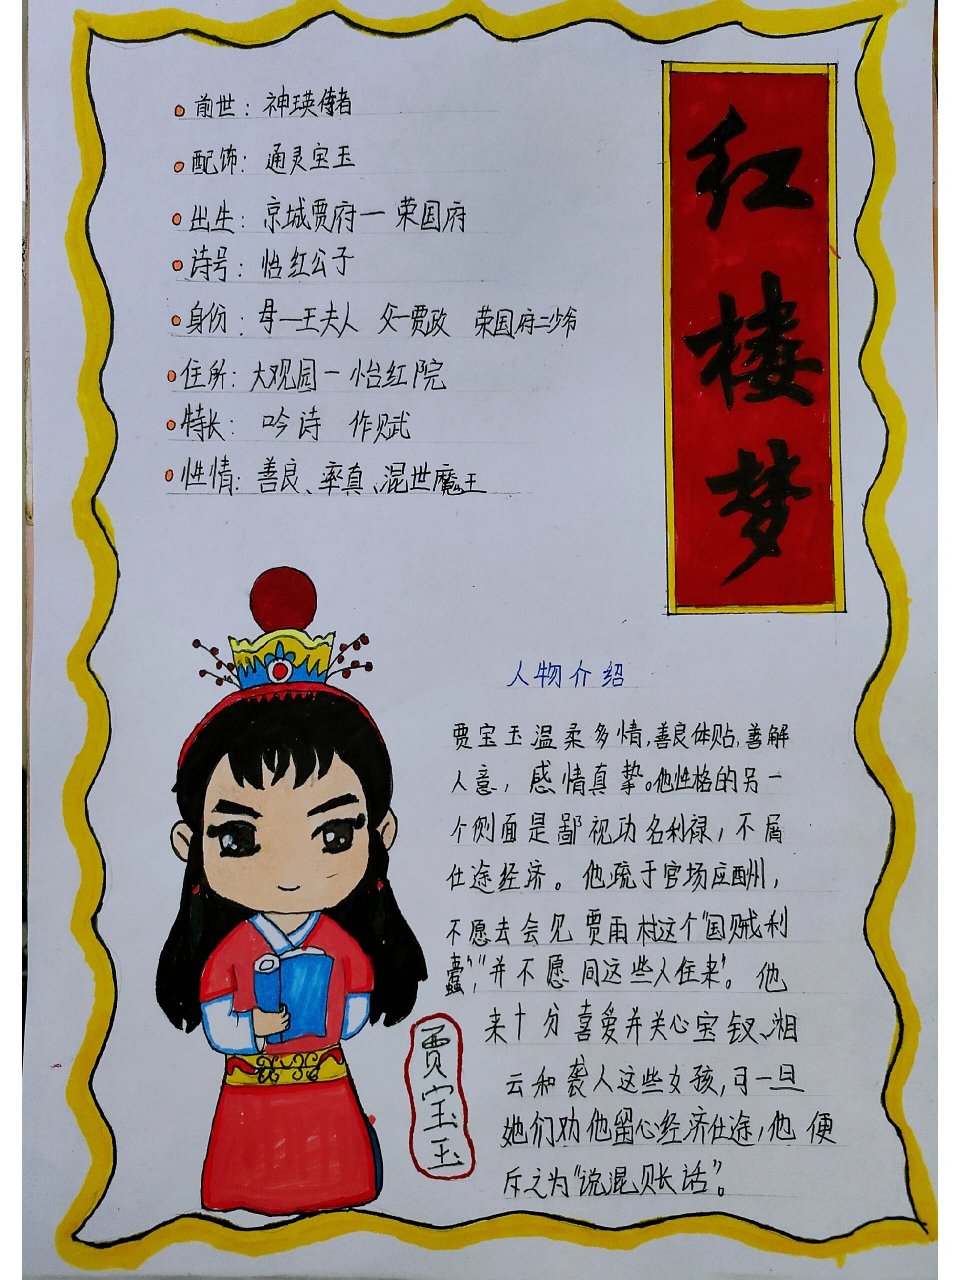 红楼梦
前世：神瑛侍者
配饰：通灵宝玉
出生：京城贾府一荣国府
诗号：怡红公子
身份：母一王夫人 父一贾政 荣国府二少爷
住所：大观园一怡红院
特长：吟诗 作赋
性情：善良、率真、混世魔王
人物介绍
贾宝玉温柔多情,善良体贴,善解
人意，感情真挚。他性格的另一
个侧面是鄙视功名利禄，不屑
仕途经济。他疏于官场应酬，
不愿去会见贾雨村这个“国贼利
蠹”，并不愿同这些人住来”。他
来十分喜爱并关心宝钗、湘
云和袭人这些女孩,可一旦
她们劝他留心经济仕途，他便
斥之为“说混账话”。
贾宝玉